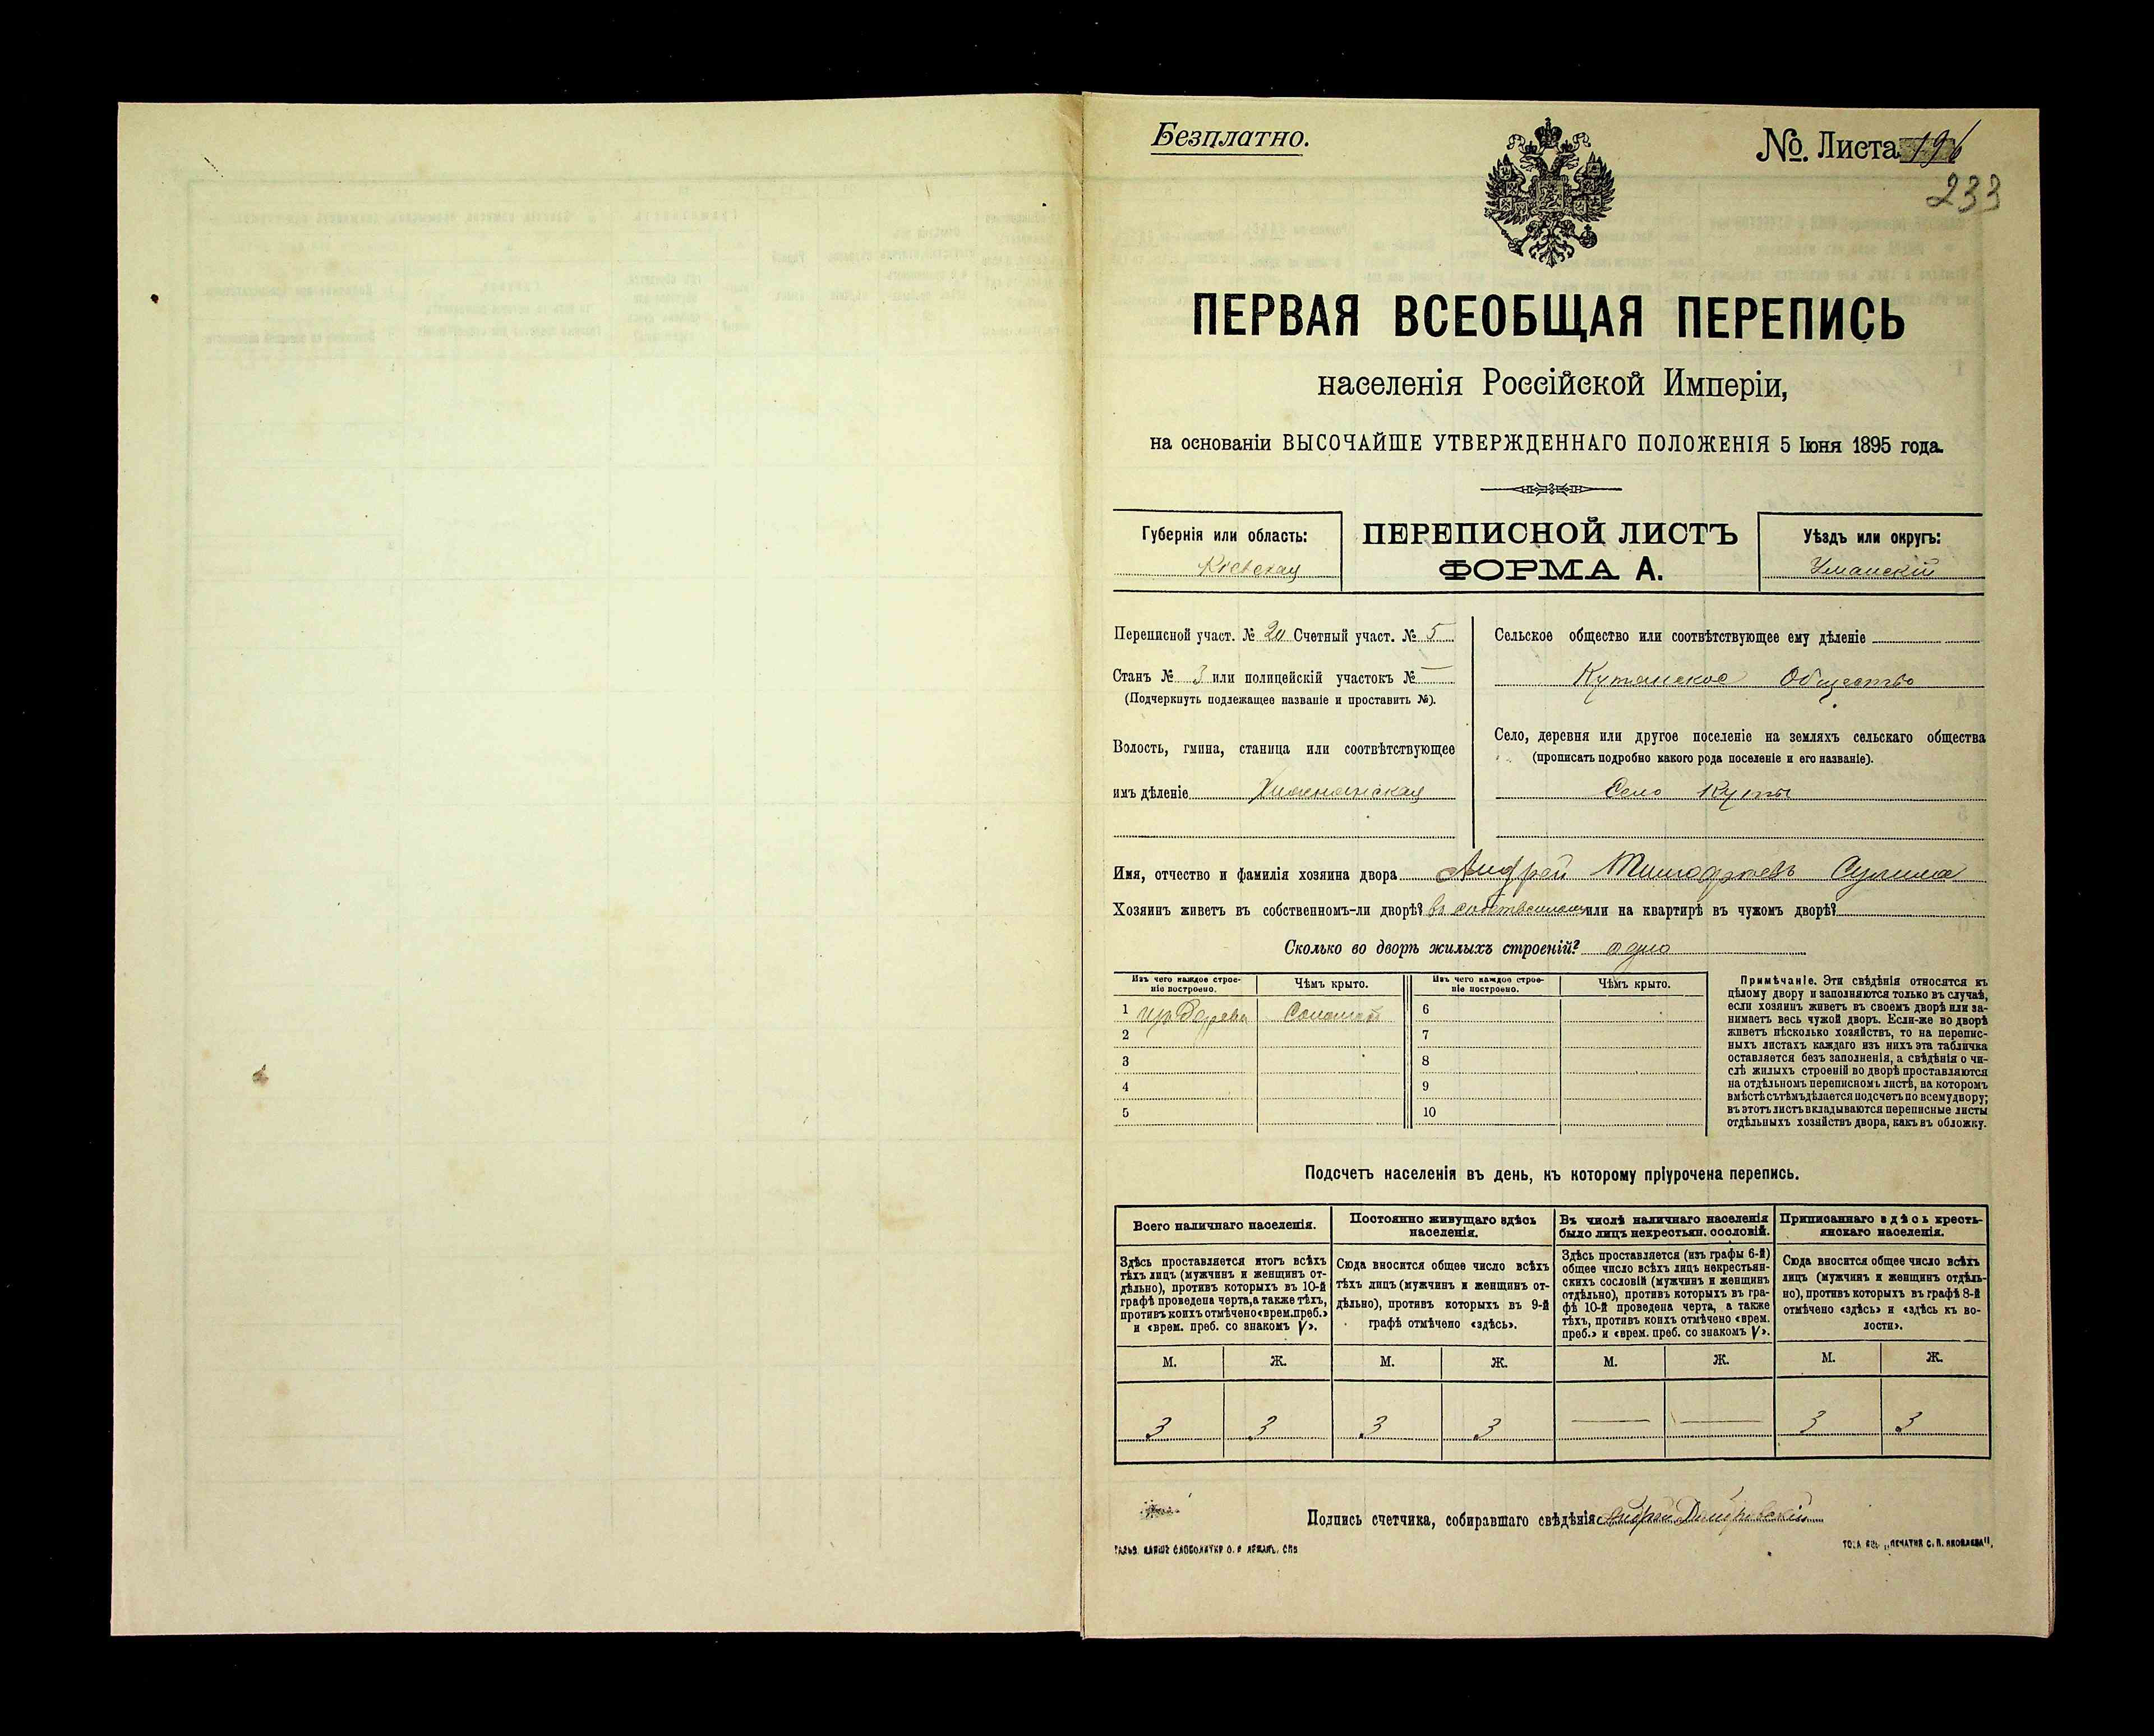 Безплатно.
№. Листа 196
233
ПЕРВАЯ ВСЕОБЩАЯ ПЕРЕПИСЬ
населенія Россійской Имперіи,
на основаніи ВЫСОЧАЙШЕ УТВЕРЖДЕННАГО ПОЛОЖЕНІЯ 5 Іюня 1895 года.
Губернія или область:
Кіевская
ПЕРЕПИСНОЙ ЛИСТЪ
ФОРМА А.
Уѣздъ или округъ:
Уманскій
Переписной участ. № 20 Счетный участ. № 5
Станъ № 3 или полицейскій участокъ № —
(Подчеркнуть подлежащее названіе и проставить №).
Волость, гмина, станица или соотвѣтствующее
имъ дѣленіе
Сельское общество или соотвѣтствующее ему дѣленіе
Кутянское Общество
Село, деревня или другое поселеніе на земляхъ сельскаго общества
(прописать подробно какого рода поселеніе и его названіе).
Село Куты
Имя, отчество и фамилія хозяина двора Андрей
Хозяинъ живетъ въ собственномъ-ли дворѣ? въ собственномъ или на квартирѣ въ чужомъ дворѣ?
Сколько во дворѣ жилыхъ строеній? одно
Изъ чего каждое строе-
ніе построено.
Чѣмъ крыто.
Изъ чего каждое строе-
ніе построено.
Чѣмъ крыто.
1 изъ дерева Соломой 6
2 7
3 8
4 9
5 10
Примѣчаніе. Эти свѣдѣнія относятся къ
цѣлому двору и заполняются только въ случаѣ,
если хозяинъ живетъ въ своемъ дворѣ или за-
нимаетъ весь чужой дворъ. Если-же во дворѣ
живетъ нѣсколько хозяйствъ, то на перепис-
ныхъ листахъ каждаго изъ нихъ эта табличка
оставляется безъ заполненія, а свѣдѣнія о чи-
слѣ жилыхъ строеній во дворѣ проставляются
на отдѣльномъ переписномъ листѣ, на которомъ
вмѣстѣ съ тѣмъ дѣлается подсчетъ по всему двору;
въ этотъ листъ вкладываются переписные листы
отдѣльныхъ хозяйствъ двора, какъ въ обложку.
Подсчетъ населенія въ день, къ которому пріурочена перепись.
Всего наличнаго населенія.
Здѣсь проставляется итогъ всѣхъ
тѣхъ лицъ (мужчинъ и женщинъ от-
дѣльно), противъ которыхъ въ 10-й
графѣ проведена черта, а также тѣхъ,
противъ коихъ отмѣчено «врем. преб.»
и «врем. преб. со знакомъ V».
Постоянно живущаго здѣсь
населенія.
Сюда вносится общее число всѣхъ
тѣхъ лицъ (мужчинъ и женщинъ от-
дѣльно), противъ которыхъ въ 9-й
графѣ отмѣчено «здѣсь».
Въ числѣ наличнаго населенія
было лицъ некрестьян. сословій.
Здѣсь проставляется (изъ графы 6-й)
общее число всѣхъ лицъ некрестьян-
скихъ сословій (мужчинъ и женщинъ
отдѣльно), противъ которыхъ въ гра-
фѣ 10-й проведена черта, а также
тѣхъ, противъ коихъ отмѣчено «врем.
преб.» и «врем. преб. со знакомъ V».
Приписаннаго здѣсь кресть-
янскаго населенія.
Сюда вносится общее число всѣхъ
лицъ (мужчинъ и женщинъ отдѣль-
но), противъ которыхъ въ графѣ 8-й
отмѣчено «здѣсь» и «здѣсь къ во-
лости».
М. Ж. М. Ж. М. Ж. М. Ж.
3 3 3 3 — — 3 3
Подпись счетчика, собиравшаго свѣдѣнія Андрей